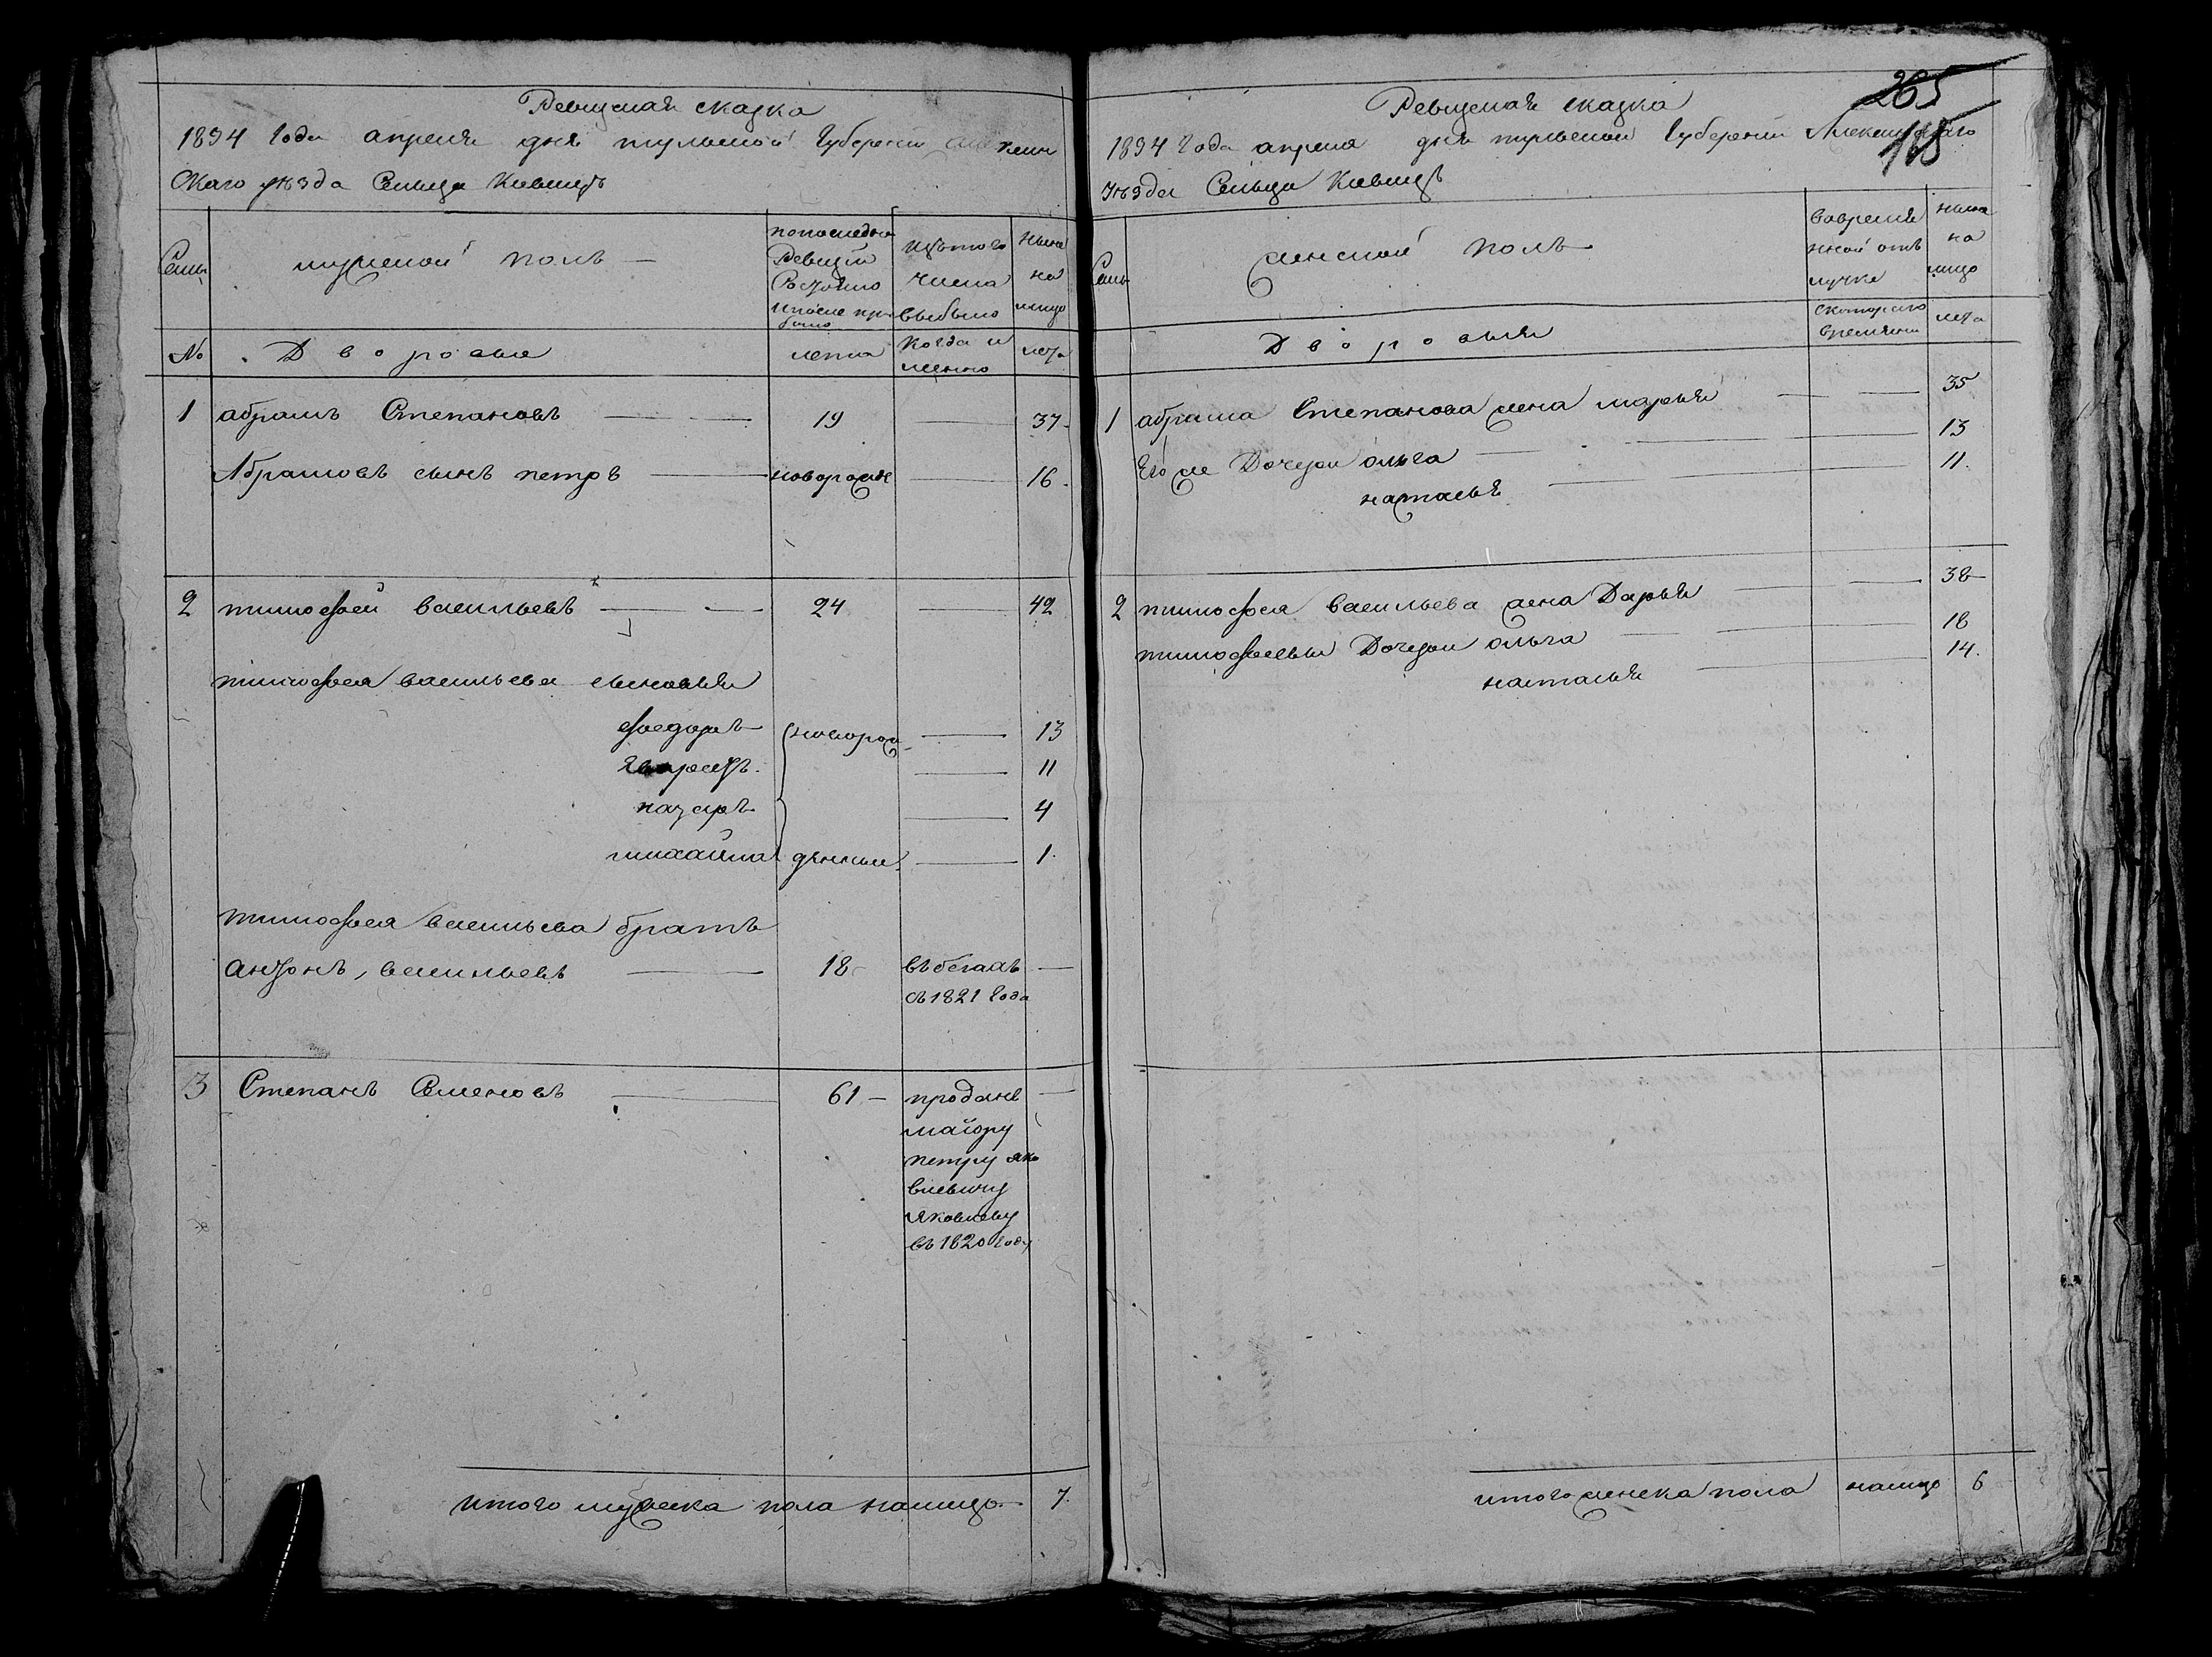 Ревизская сказка
1834 Года апреля дня тульской Губернии алексин
Скаго уезда Сельца
Семьи
мужеской полъ
попоследней
Ревизiи
Состояло
ипосле при
было
изътого
числа
выбыло
ныне
на
лицо
№
Дворовыя
лета
когда и
менно
лета
1 абрамъ Степановъ 19 37
Абрамовъ сынъ петръ новорожде 16
2 тимофей васильевъ 24 42
тимофея васильева сыновья
федоръ новорож 13
11
назаръ 4
михайла денныи 1
тимофея васильева братъ
антонъ васильевъ 18 въбегахъ
съ1821 Года
3 Степанъ Семеновъ 61 проданъ
маiору
петру яко
влевичу
яковлеву
въ1820 Году
итого мужеска пола налицо 7
265
115
Ревизская сказка
1834 Года апреля дня тульской Губернии Алексинскаго
Уезда Сельца
Семьи
женской полъ
вовремя
нной отъ
лучке
ныне
на
лицо
Дворовыя
скотораго
времяни
лета
1 абрама Степанова жена марья 35
Его же Дочери ольга 13
наталья 11
2 тимофея васильева жена Дарья 38
тимофеевы Дочери ольга 18
наталья 14
итого женска пола налицо 6